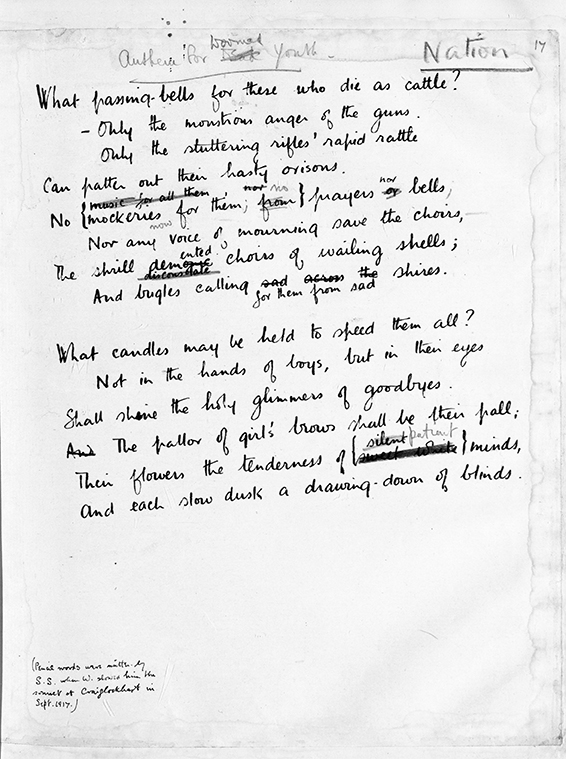 Doomed
Anthem for Dead Youth - Nation 17
What passing-bells for these who die as cattle?
- Only the monstrous anger of the guns.
Only the stuttering rifles' rapid rattle
Can patter out their hasty orisons.
music for all them nor no nor
No {mockeries for them; from} prayers or bells,
now
Nor any voice of mourning save the choirs,
ented
The shrill demonic choirs of wailing shells;
disconsolate
And bugles calling sad across the shires.
for them from sad
What candles may be held to speed them all?
Not in the hands of boys, but in their eyes
Shall shine the holy glimmers of goodbyes.
And The pallor of girls' brows shall be their pall;
silent patient
Their flowers the tenderness of {sweet white} minds,
And each slow dusk a drawing-down of blinds.
(Pencil words were written by
S.S. when W. showed him the
sonnet at Craiglockhart in
Sept. 1917.)